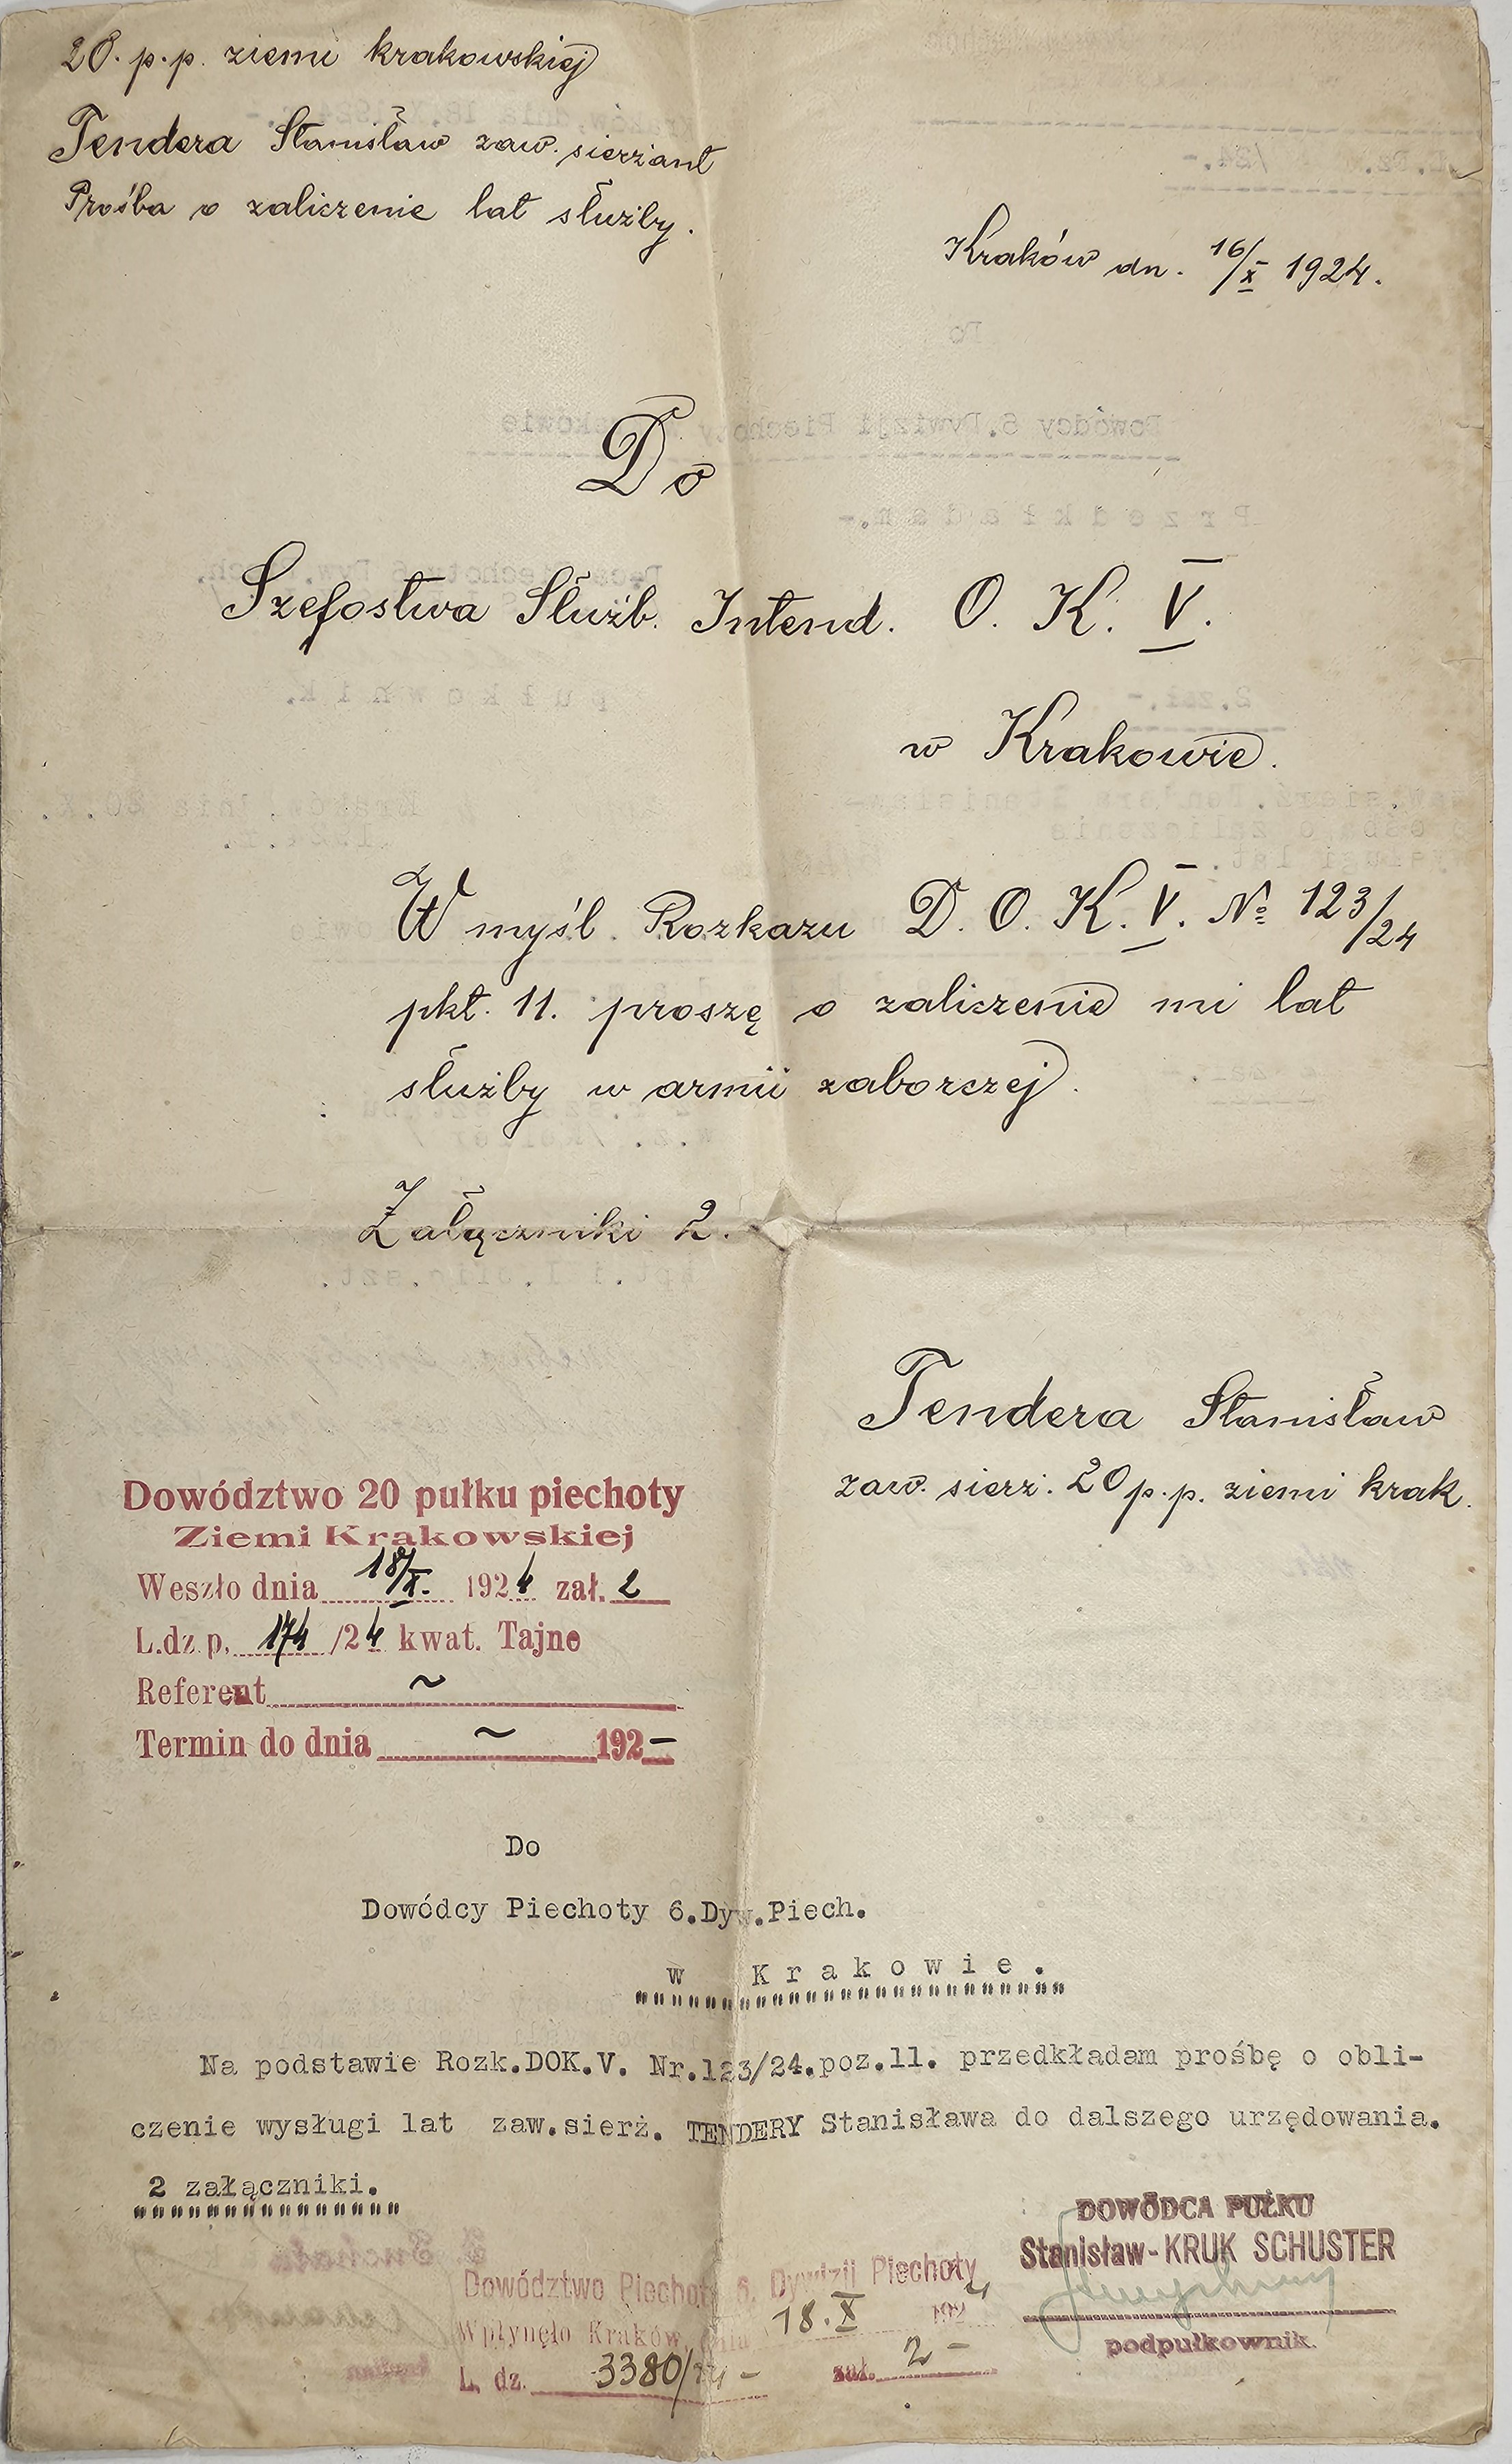 20. p.p. ziemi krakowskiej
Tendera Stanisław zaw. sierżant
Prośba o zaliczenie lat służby.
Kraków dn. 16/X 1924.
Do
Szefostwa Służb. Intend. O. K. V.
w Krakowie.
W myśl Rozkazu D. O. K. V. № 123/24
pkt. 11. proszę o zaliczenie mi lat
służby w armii zaborczej.
Załączniki 2.
Tendera Stanisław
zaw. sierż. 20 p.p. ziemi krak.
Dowództwo 20 pułku piechoty
Ziemi Krakowskiej
Weszło dnia 18/X. 1924 zał. 2
L.dz.p. 174/24 kwat. Tajne
Referent ~
Termin do dnia ~ 192–
Do
Dowódcy Piechoty 6.Dyw.Piech.
w Krakowie.
Na podstawie Rozk.DOK.V. Nr.123/24.poz.11. przedkładam prośbę o obli-
czenie wysługi lat zaw.sierż. TENDERY Stanisława do dalszego urzędowania.
2 załączniki.
DOWÓDCA PUŁKU
Stanisław-KRUK SCHUSTER
podpułkownik.
Dowództwo Piechoty 6. Dywizji Piechoty
Wpłynęło Kraków, dnia 18.X 1924
L. dz. 3380/24 – zał. 2 –